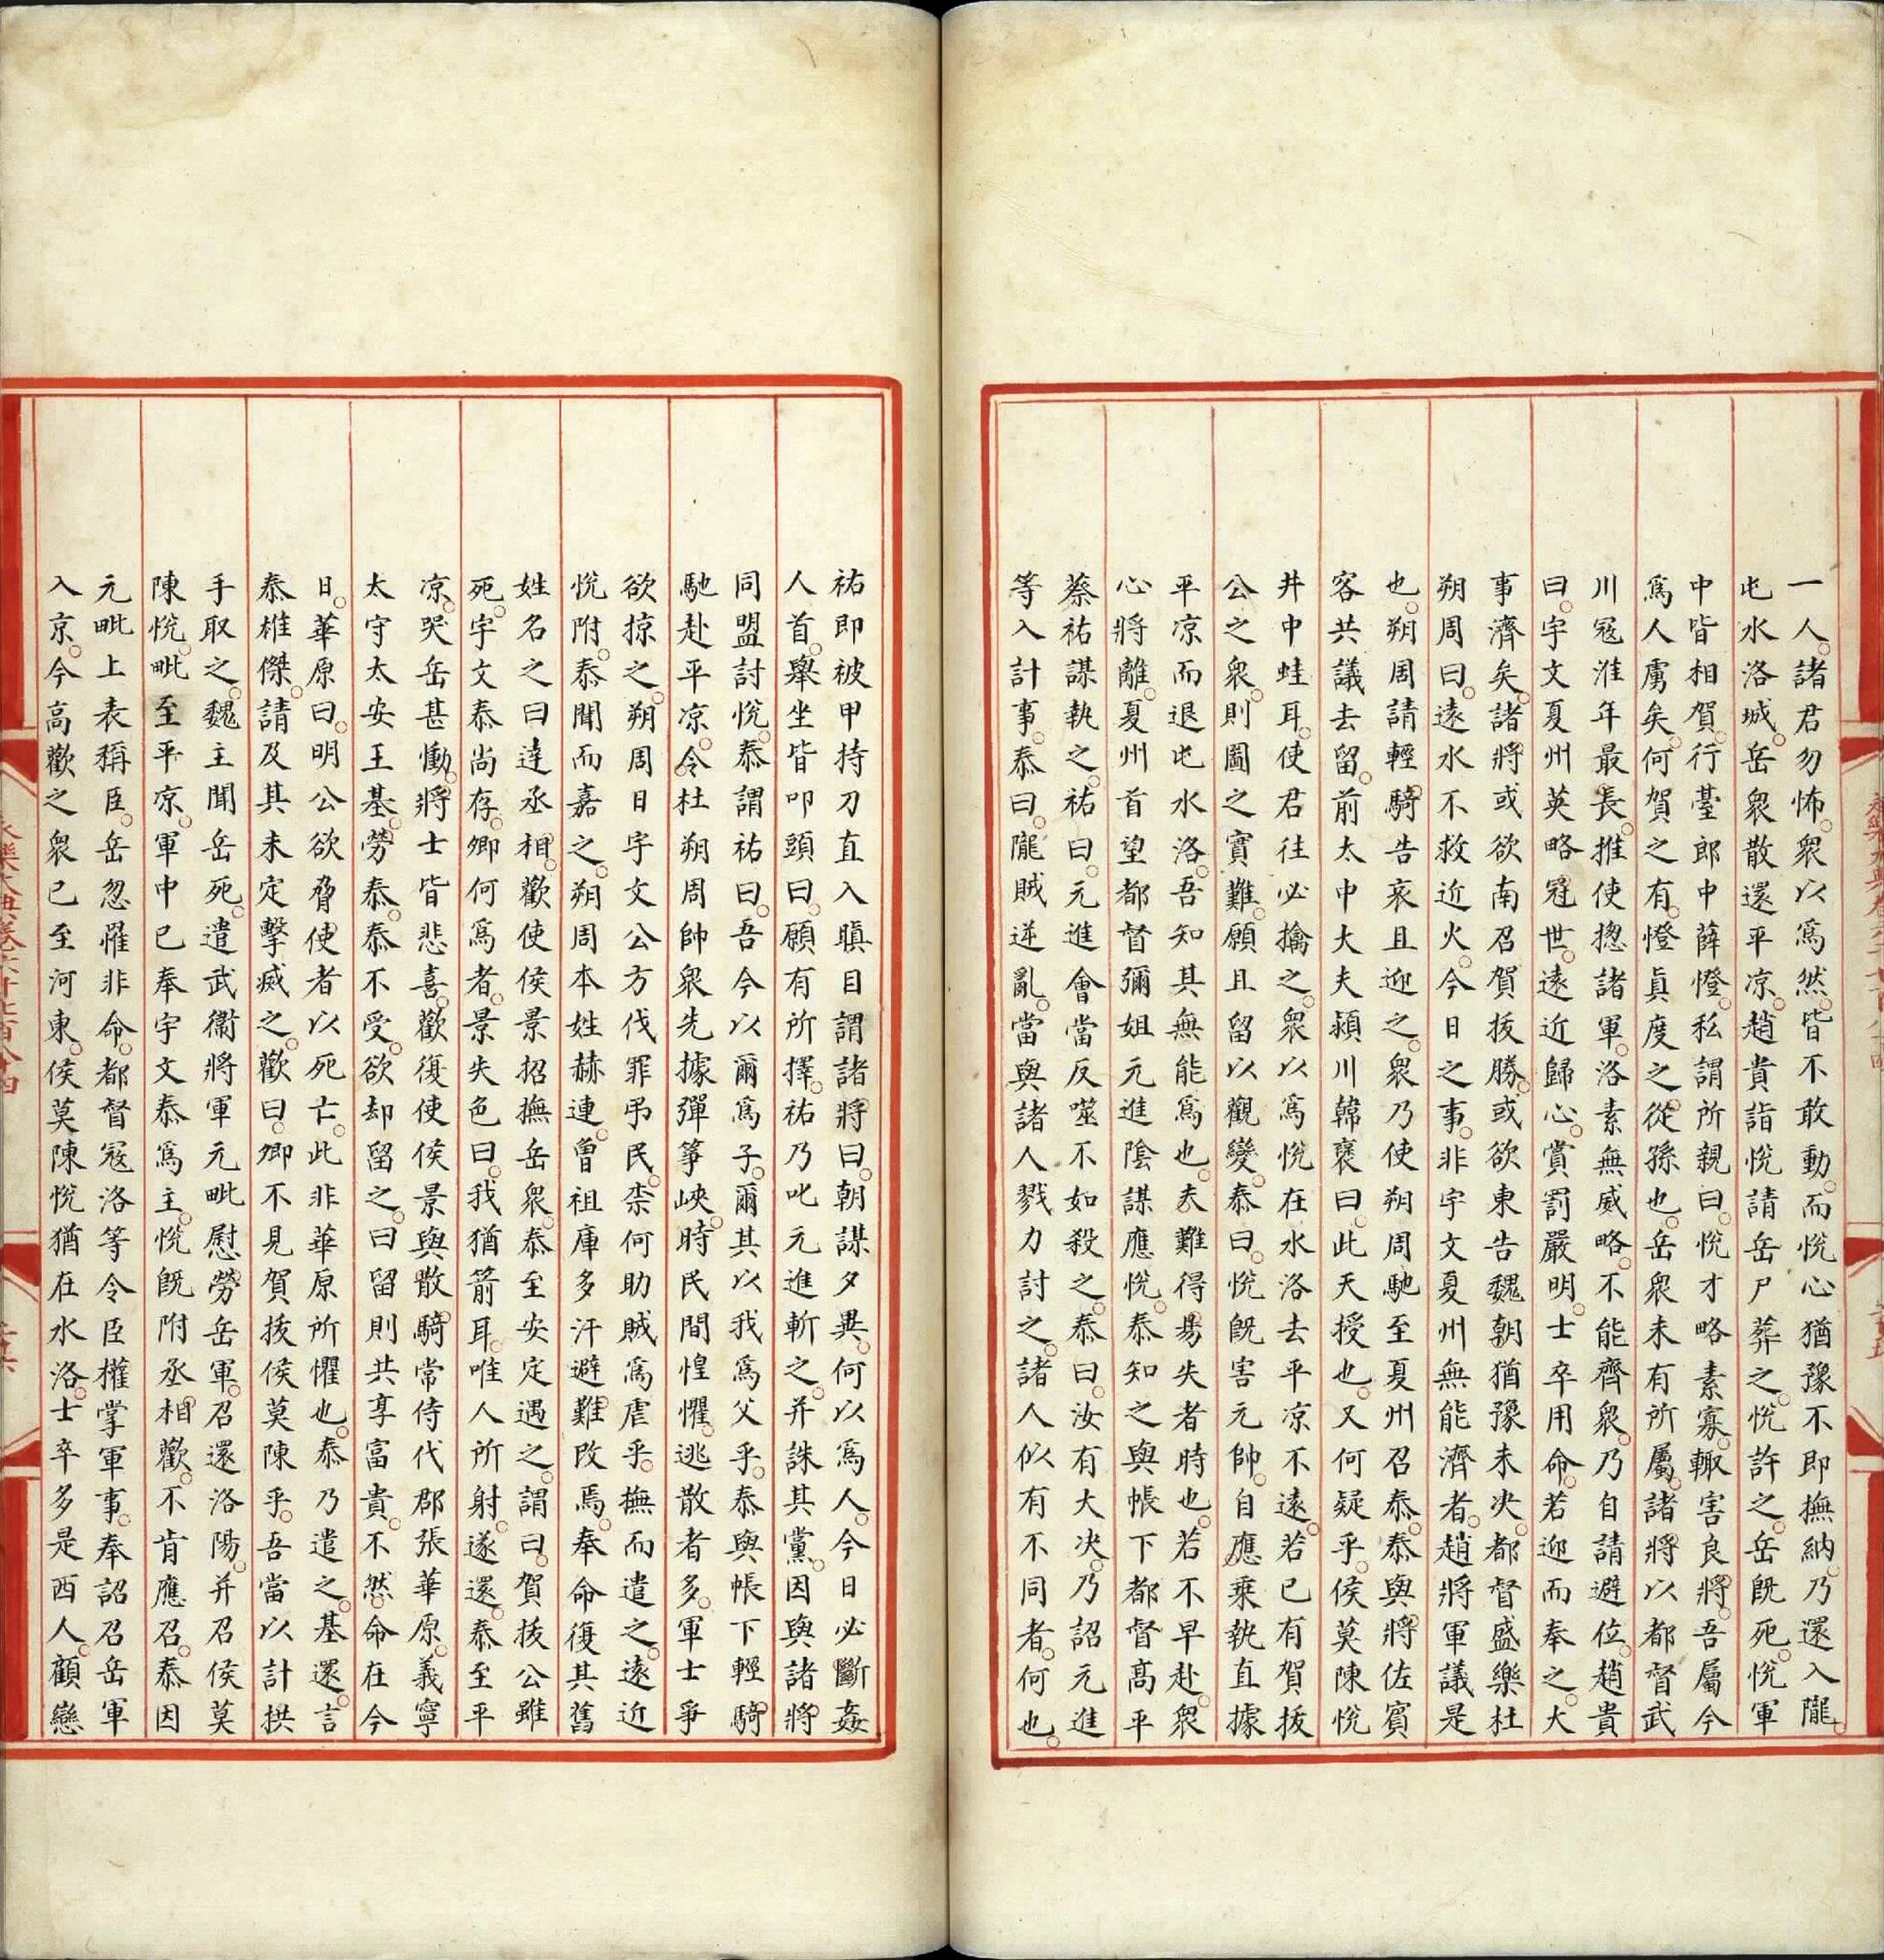 一人。諸君勿怖。衆以爲然。皆不敢動。而悅心猶豫不即撫納。乃還入隴。
屯水洛城。岳衆散還平凉。趙貴詣悅請岳尸葬之。悅許之。岳旣死。悅軍
中皆相賀。行臺郎中薛憕。私謂所親曰。悅才略素寡。輙害良將。吾屬今
爲人虜矣。何賀之有。憕眞度之從孫也。岳衆未有所屬。諸將以都督武
川冦洛年最長。推使揔諸軍。洛素無威略。不能齊衆。乃自請避位。趙貴
曰。宇文夏州英略冠世。遠近歸心。賞罰嚴明。士卒用命。若迎而奉之。大
事濟矣。諸將或欲南召賀拔勝。或欲東告魏朝猶豫未决。都督盛樂杜
朔周曰。遠水不救近火。今日之事。非宇文夏州無能濟者。趙將軍議是
也。朔周請輕騎告哀且迎之。衆乃使朔周馳至夏州召泰。泰與將佐賓
客共議去留。前太中大夫潁川韓襃曰。此天授也。又何疑乎。侯莫陳悅
井中蛙耳。使君往必擒之。衆以爲悅在水洛去平凉不遠。若已有賀拔
公之衆。則圖之實難。願且留以觀變。泰曰。悅旣害元帥。自應乗埶直據
平凉而退屯水洛。吾知其無能爲也。夫難得昜失者時也。若不早赴。衆
心將離。夏州首望都督彌姐元進陰謀應悅。泰知之與帳下都督髙平
蔡祐謀執之。祐曰。元進會當反噬不如殺之。泰曰。汝有大决。乃詔元進
等入計事。泰曰。隴賊逆亂。當與諸人戮力討之。諸人似有不同者。何也。
祐即被甲持刀直入瞋目謂諸將曰。朝謀夕異。何以爲人。今日必斷姦
人首。舉坐皆叩頭曰。願有所擇。祐乃叱元進斬之。并誅其黨。因與諸將
同盟討悅。泰謂祐曰。吾今以爾爲子。爾其以我爲父乎。泰與帳下輕騎
馳赴平凉。令杜朔周帥衆先據彈箏峽。時民間惶懼。逃散者多。軍士爭
欲掠之。朔周曰宇文公方伐罪弔民。柰何助賊爲虐乎。撫而遣之。遠近
悅附。泰聞而嘉之。朔周本姓赫連。曾祖庫多汗避難改焉。奉命復其舊
姓名之曰達丞相。歡使侯景招撫岳衆。泰至安定遇之。謂曰。賀拔公雖
死。宇文泰尚存。卿何爲者。景失色曰。我猶箭耳。唯人所射。遂還。泰至平
凉。哭岳甚慟。將士皆悲喜。歡復使侯景與散騎常侍代郡張華原。義寧
太守太安王基。勞泰。泰不受。欲却留之。曰留則共享富貴。不然。命在今
日。華原曰。明公欲脅使者以死亡。此非華原所懼也。泰乃遣之。基還。言
泰雄傑。請及其未定擊㓕之。歡曰。卿不見賀拔侯莫陳乎。吾當以計拱
手取之。魏主聞岳死。遣武衞將軍元毗慰勞岳軍。召還洛陽。并召侯莫
陳悅。毗至平凉。軍中已奉宇文泰爲主。悅旣附丞相歡。不肯應召。泰因
元毗上表稱臣。岳忽罹非命。都督冦洛等令臣權掌軍事。奉詔召岳軍
入京。今高歡之衆已至河東。侯莫陳悅猶在水洛。士卒多是西人。顧戀